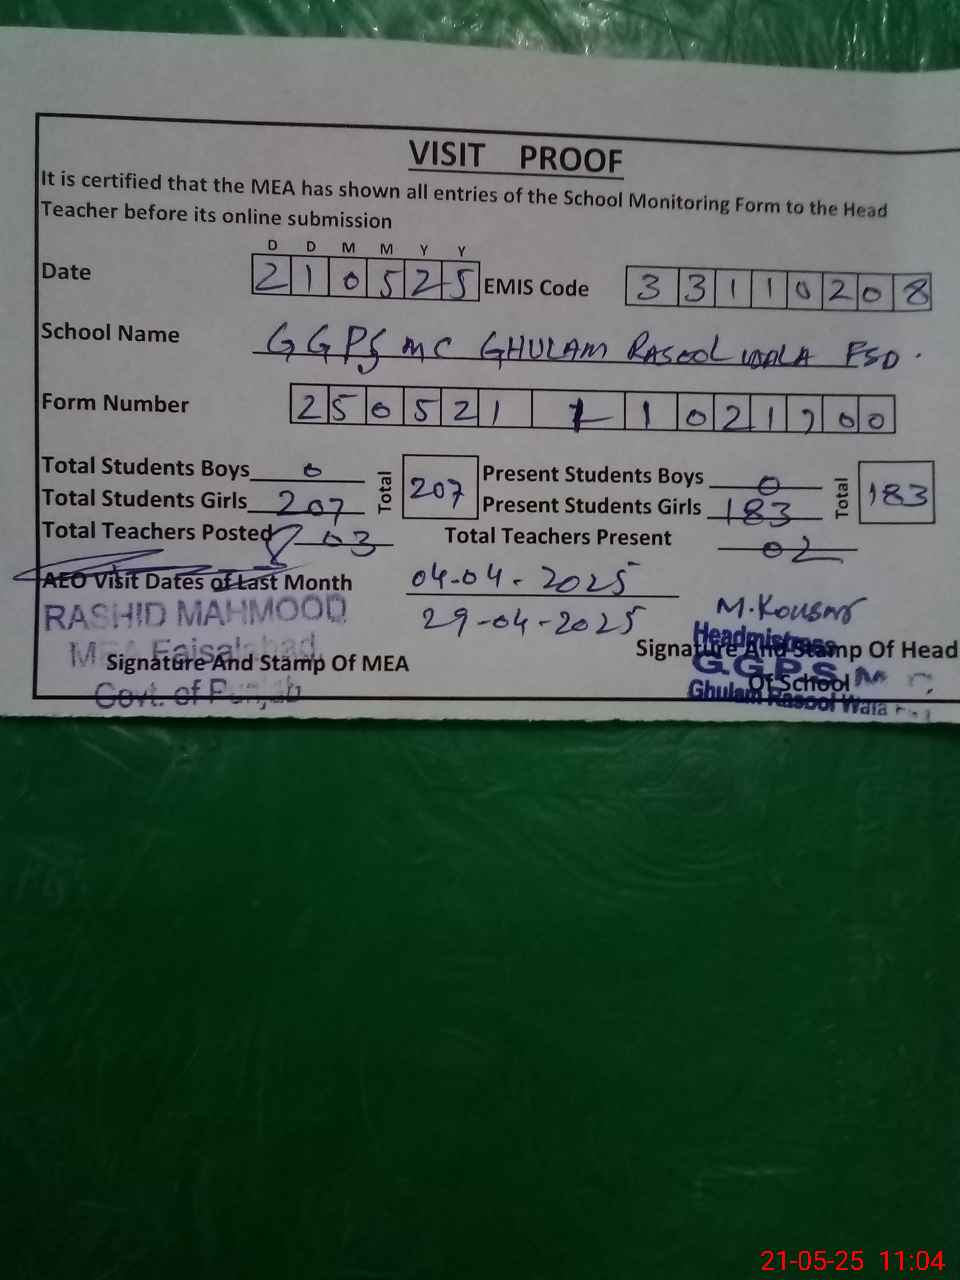 VISIT PROOF
It is certified that the MEA has shown all entries of the School Monitoring Form to the Head
Teacher before its online submission
D D M M Y Y
Date 2 1 0 5 2 5 EMIS Code 3 3 1 1 0 2 0 8
School Name GGPS MC GHULAM RASOOL WALA FSD.
Form Number 2 5 0 5 2 1 1 1 0 2 1 9 0 0
Total Students Boys 0 Total 207 Present Students Boys 0 Total 183
Total Students Girls 207 Present Students Girls 183
Total Teachers Posted 03 Total Teachers Present 02
AEO Visit Dates of Last Month 04-04-2025
29-04-2025
RASHID MAHMOOD
MEA Faisalabad
Govt. of Punjab
Signature And Stamp Of MEA
M.Kousar
Signature And Stamp Of Head
Of School
Headmistress
G.G.P.S M C
Ghulam Rasool Wala
21-05-25 11:04